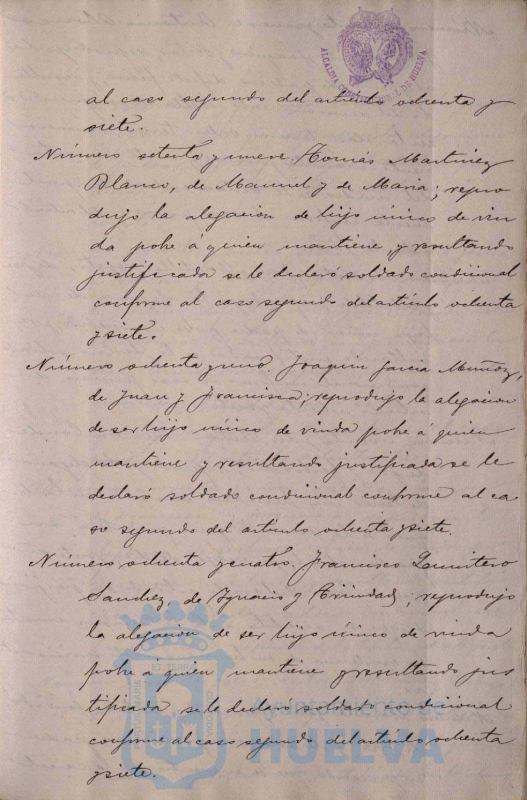 ALCALDIA CONSTITUCIONAL DE HUELVA
al caso segundo del artículo ochenta y
siete.
Número setenta y nueve. Tomás Martínez
Blanco, de Manuel y de María; repro
dujo la alegacion de hijo único de viu
da pobre á quien mantiene, y resultando
justificada se le declaró soldado condicional
conforme al caso segundo del artículo ochenta
y siete.
Número ochenta y uno. Joaquin Garcia Muñoz,
de Juan y Francisca; reprodujo la alegacion
de ser hijo único de viuda pobre á quien
mantiene y resultando justificada se le
declaró soldado condicional conforme al ca
so segundo del artículo ochenta y siete.
Número ochenta y cuatro. Francisco
Sanchez de Ignacio y Trinidad; reprodujo
la alegacion de ser hijo único de viuda
pobre á quien mantiene y resultando jus
tificada se le declaró soldado condicional
conforme al caso segundo del artículo ochenta
y siete.
Ayuntamiento de
HUELVA